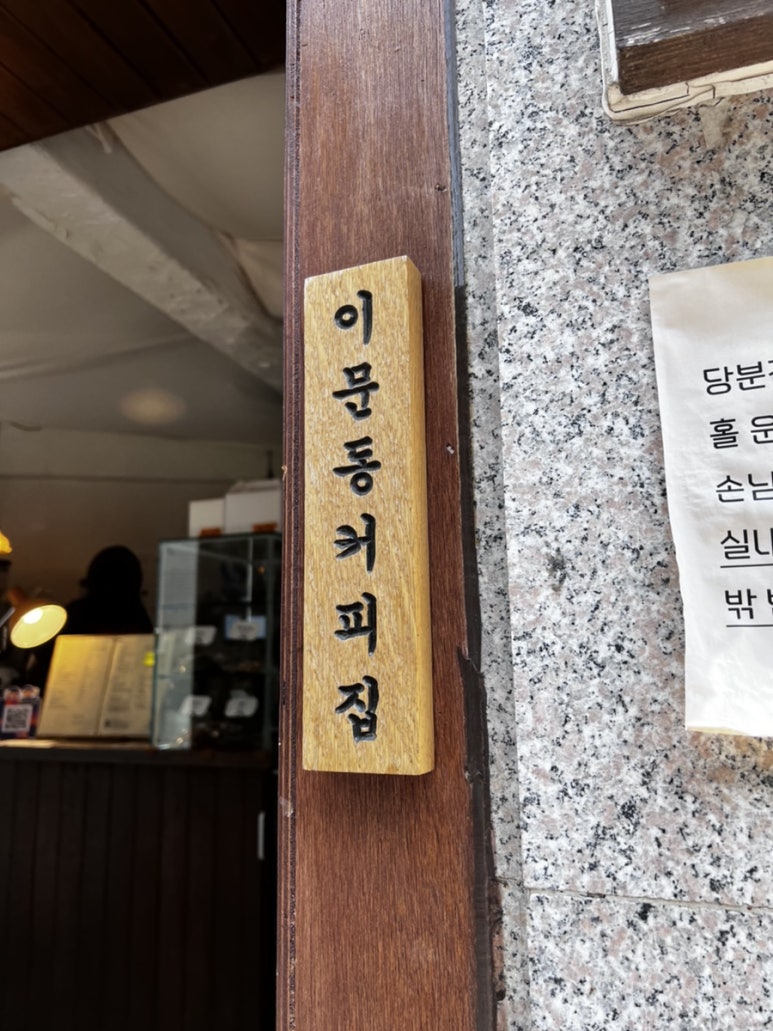 이문동커피집
당분
홀 운
손님
실내
밖